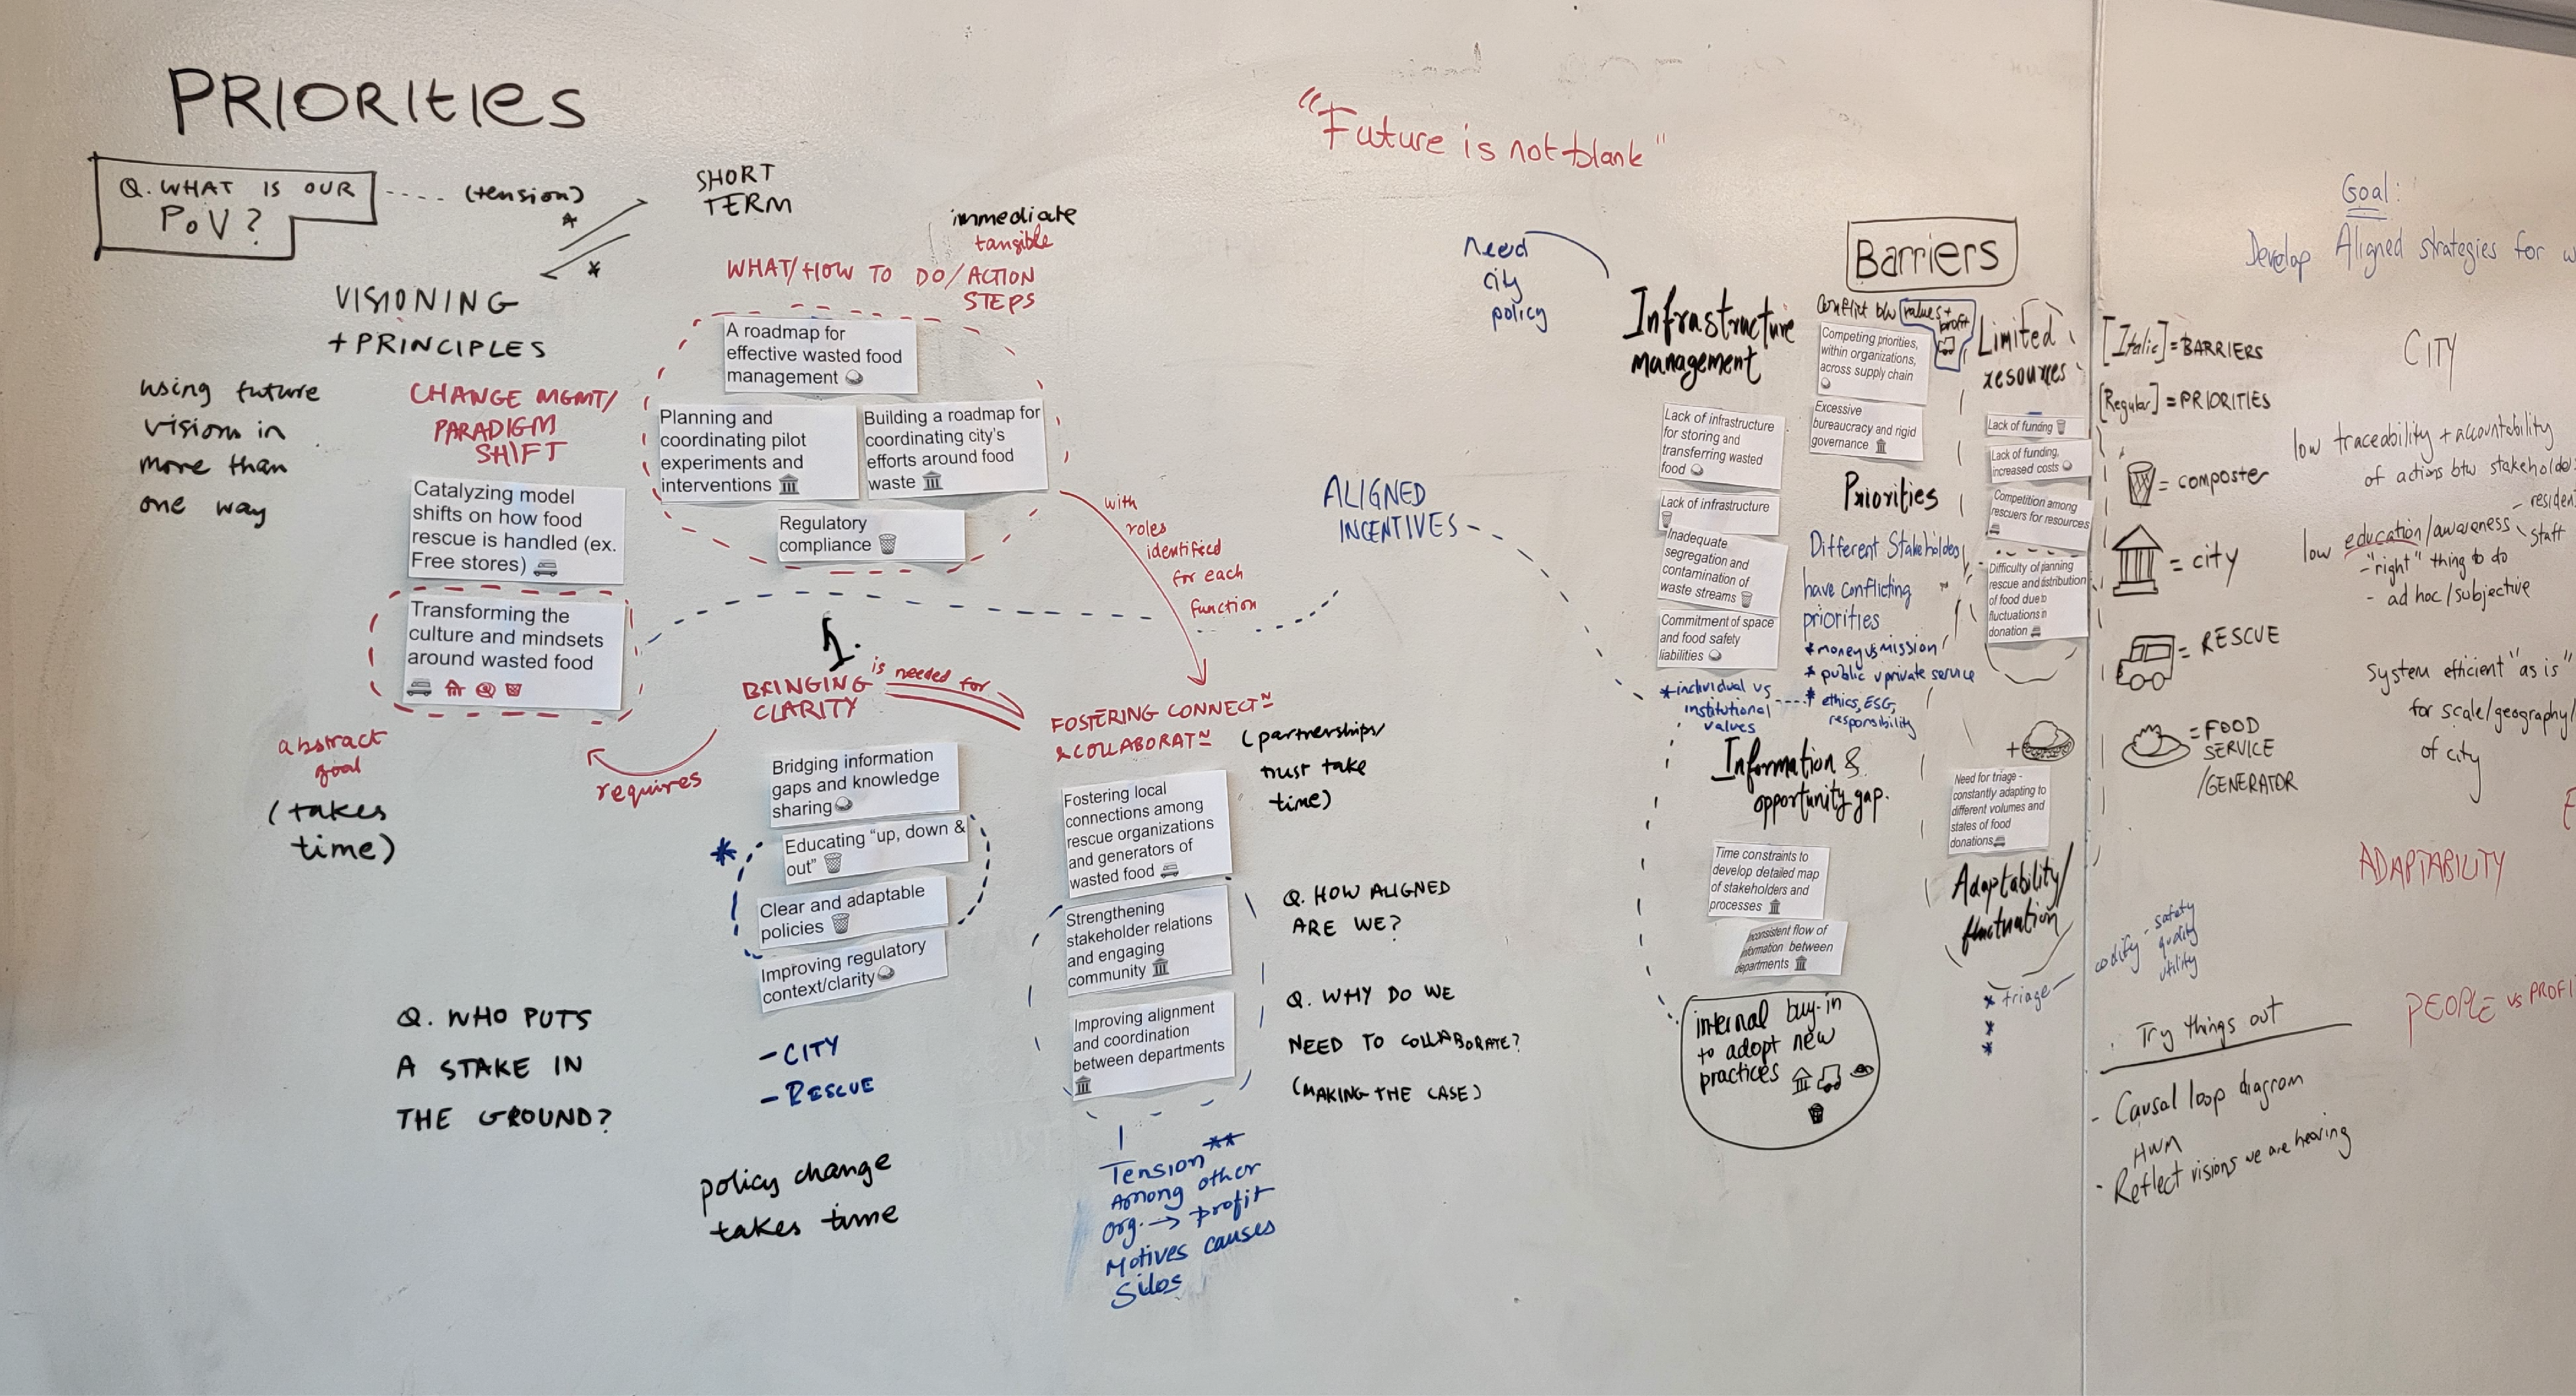 PRIORITIES
Q. WHAT IS OUR
PoV?
(tension)
*
*
SHORT
TERM
VISIONING
+ PRINCIPLES
using future
visions in
more than
one way
immediate
tangible
WHAT/HOW TO DO/ACTION
STEPS
A roadmap for
effective wasted food
management
Planning and
coordinating pilot
experiments and
interventions
Building a roadmap for
coordinating city's
efforts around food
waste
Regulatory
compliance
CHANGE MGMT/
PARADIGM
SHIFT
Catalyzing model
shifts on how food
rescue is handled (ex.
Free stores)
Transforming the
culture and mindsets
around wasted food
abstract
goal
(takes
time)
with
roles
identified
for each
function
1.
BRINGING
CLARITY
is needed for
requires
Bridging information
gaps and knowledge
sharing
*
Educating "up, down &
out"
Clear and adaptable
policies
Improving regulatory
context/clarity
- CITY
- RESCUE
policy change
takes time
Q. WHO PUTS
A STAKE IN
THE GROUND?
FOSTERING CONNECT~
& COLLABORAT~
(partnerships/
trust take
time)
Fostering local
connections among
rescue organizations
and generators of
wasted food
Strengthening
stakeholder relations
and engaging
community
Improving alignment
and coordination
between departments
Tension **
Among other
org. → profit
Motives causes
Silos
Q. HOW ALIGNED
ARE WE?
Q. WHY DO WE
NEED TO COLLABORATE?
(MAKING THE CASE)
"Future is not blank"
ALIGNED
INCENTIVES
need
city
policy
Barriers
Infrastructure
management
Lack of infrastructure
for storing and
transferring wasted
food
Lack of infrastructure
Inadequate
segregation and
contamination of
waste streams
Commitment of space
and food safety
liabilities
* individual vs
institutional
values
Conflict b/w values +
profit
Competing priorities,
within organizations,
across supply chain
Excessive
bureaucracy and rigid
governance
Priorities
Different Stakeholdes
have conflicting
priorities
* money vs mission
* public v private service
* ethics, ESG,
responsibility
Limited
resources
Lack of funding
Lack of funding,
increased costs
Competition among
rescuers for resources
Difficulty of planning
rescue and distribution
of food due to
fluctuations in
donation
+
Need for triage -
constantly adapting to
different volumes and
states of food
donations
Adaptability/
fluctuation
* triage
*
*
codify
- safety
quality
utility
Information &
opportunity gap.
Time constraints to
develop detailed map
of stakeholders and
processes
Inconsistent flow of
information between
departments
internal buy-in
to adopt new
practices
Goal:
Develop Aligned strategies for
[Italic] = BARRIERS
[Regular] = PRIORITIES
= composter
= city
= RESCUE
= FOOD
SERVICE
/GENERATOR
CITY
low traceability + accountability
of actions btw
low education/awareness
- "right" thing to do
- ad hoc/subjective
- staff
System efficient "as is"
for scale/geography/
of city
ADAPTABILITY
PEOPLE vs
Try things out
- Causal loop diagram
HWM
- Reflect visions we are hearing